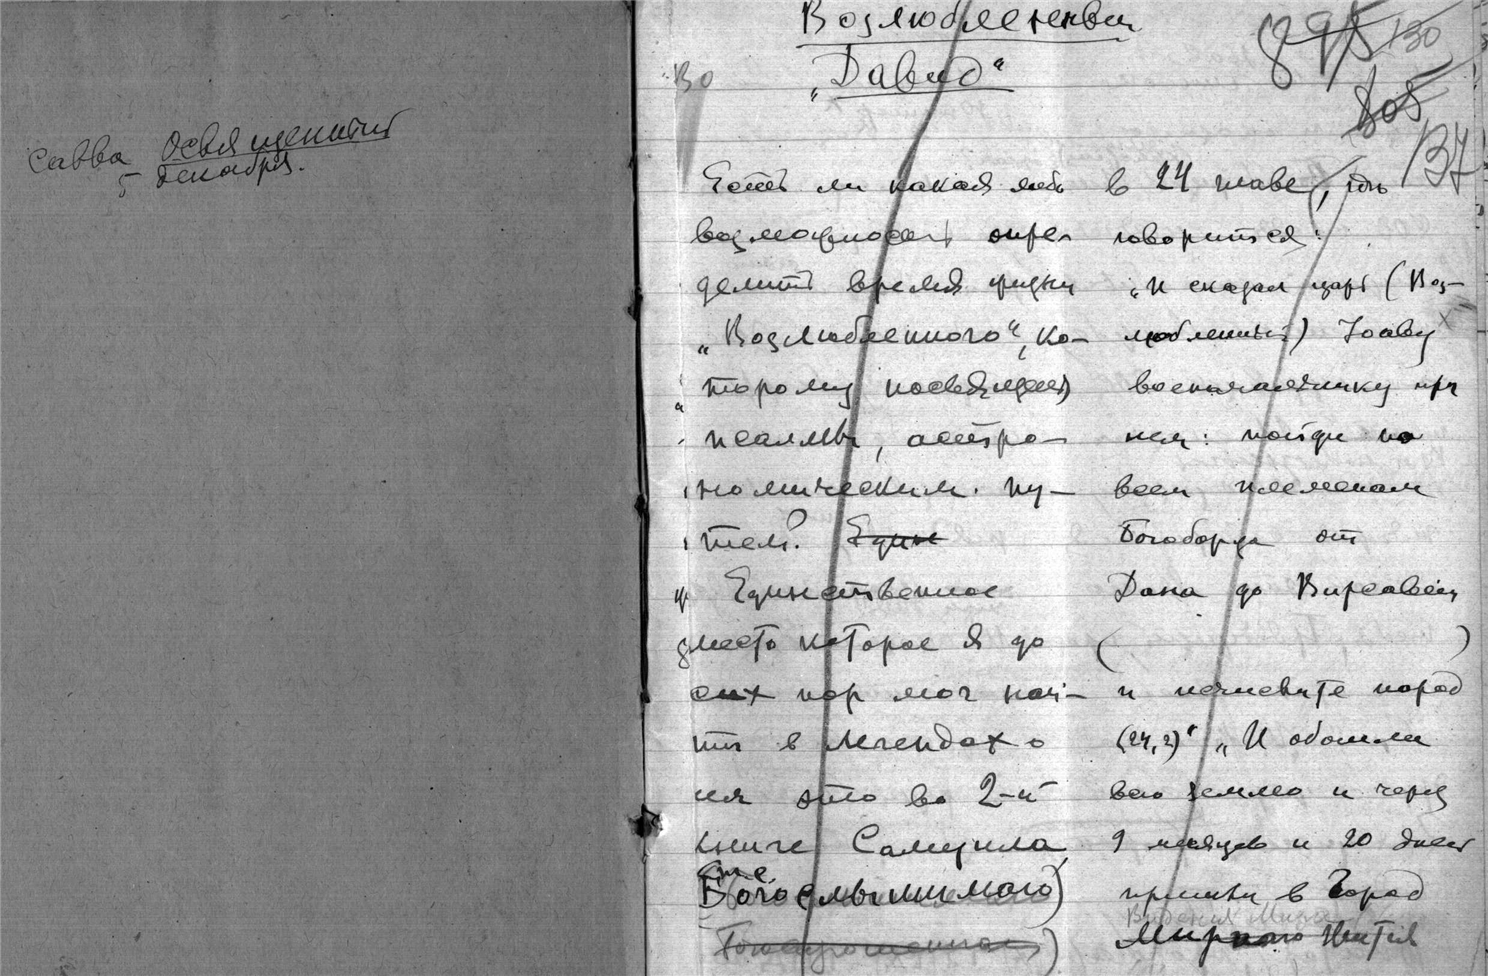 Савва Освященный
5 декабря.
Возлюбленный
„Давид“
895 130
805
137
Во
Есть ли какая либо
возможность опре-
делить время жизни
„Возлюбленного“, ко-
торому посвящены
псалмы, астро-
номическим пу-
тем? Един
Единственное
место которое я до
сих пор мог най-
ти в легендах о
нем это во 2-й
книге Самуила
Богослышимого)
в 24 главе, где
говорится:
„И сказал царь (Воз-
любленный) Иоаву
военачальнику при
нем: пойди по
всем племенам
Богоборца от
Дана до Вирсавеи
( )
и исчислите народ
(24,2)“ „И обошли
всю землю и через
9 месяцев и 20 дней
пришли в город
Видения Мира
Мирного